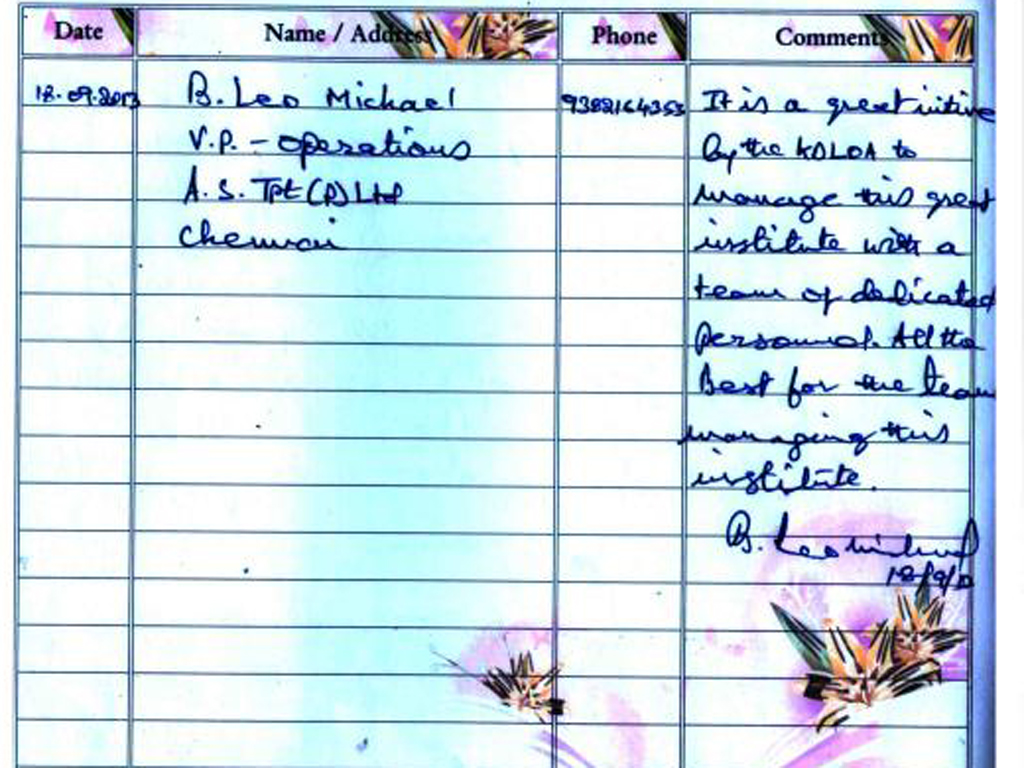 Date Name / Address Phone Comments
18.09.2013 B. Leo Michael 9382164353 It is a great initive
V.P. - operations by the KDLOA to
A.S. Tpt (P) Ltd manage this great
Chennai institute with a
team of dedicated
personnel. All the
Best for the team
managing this
institute.
B. Leo Michael
18/9/13